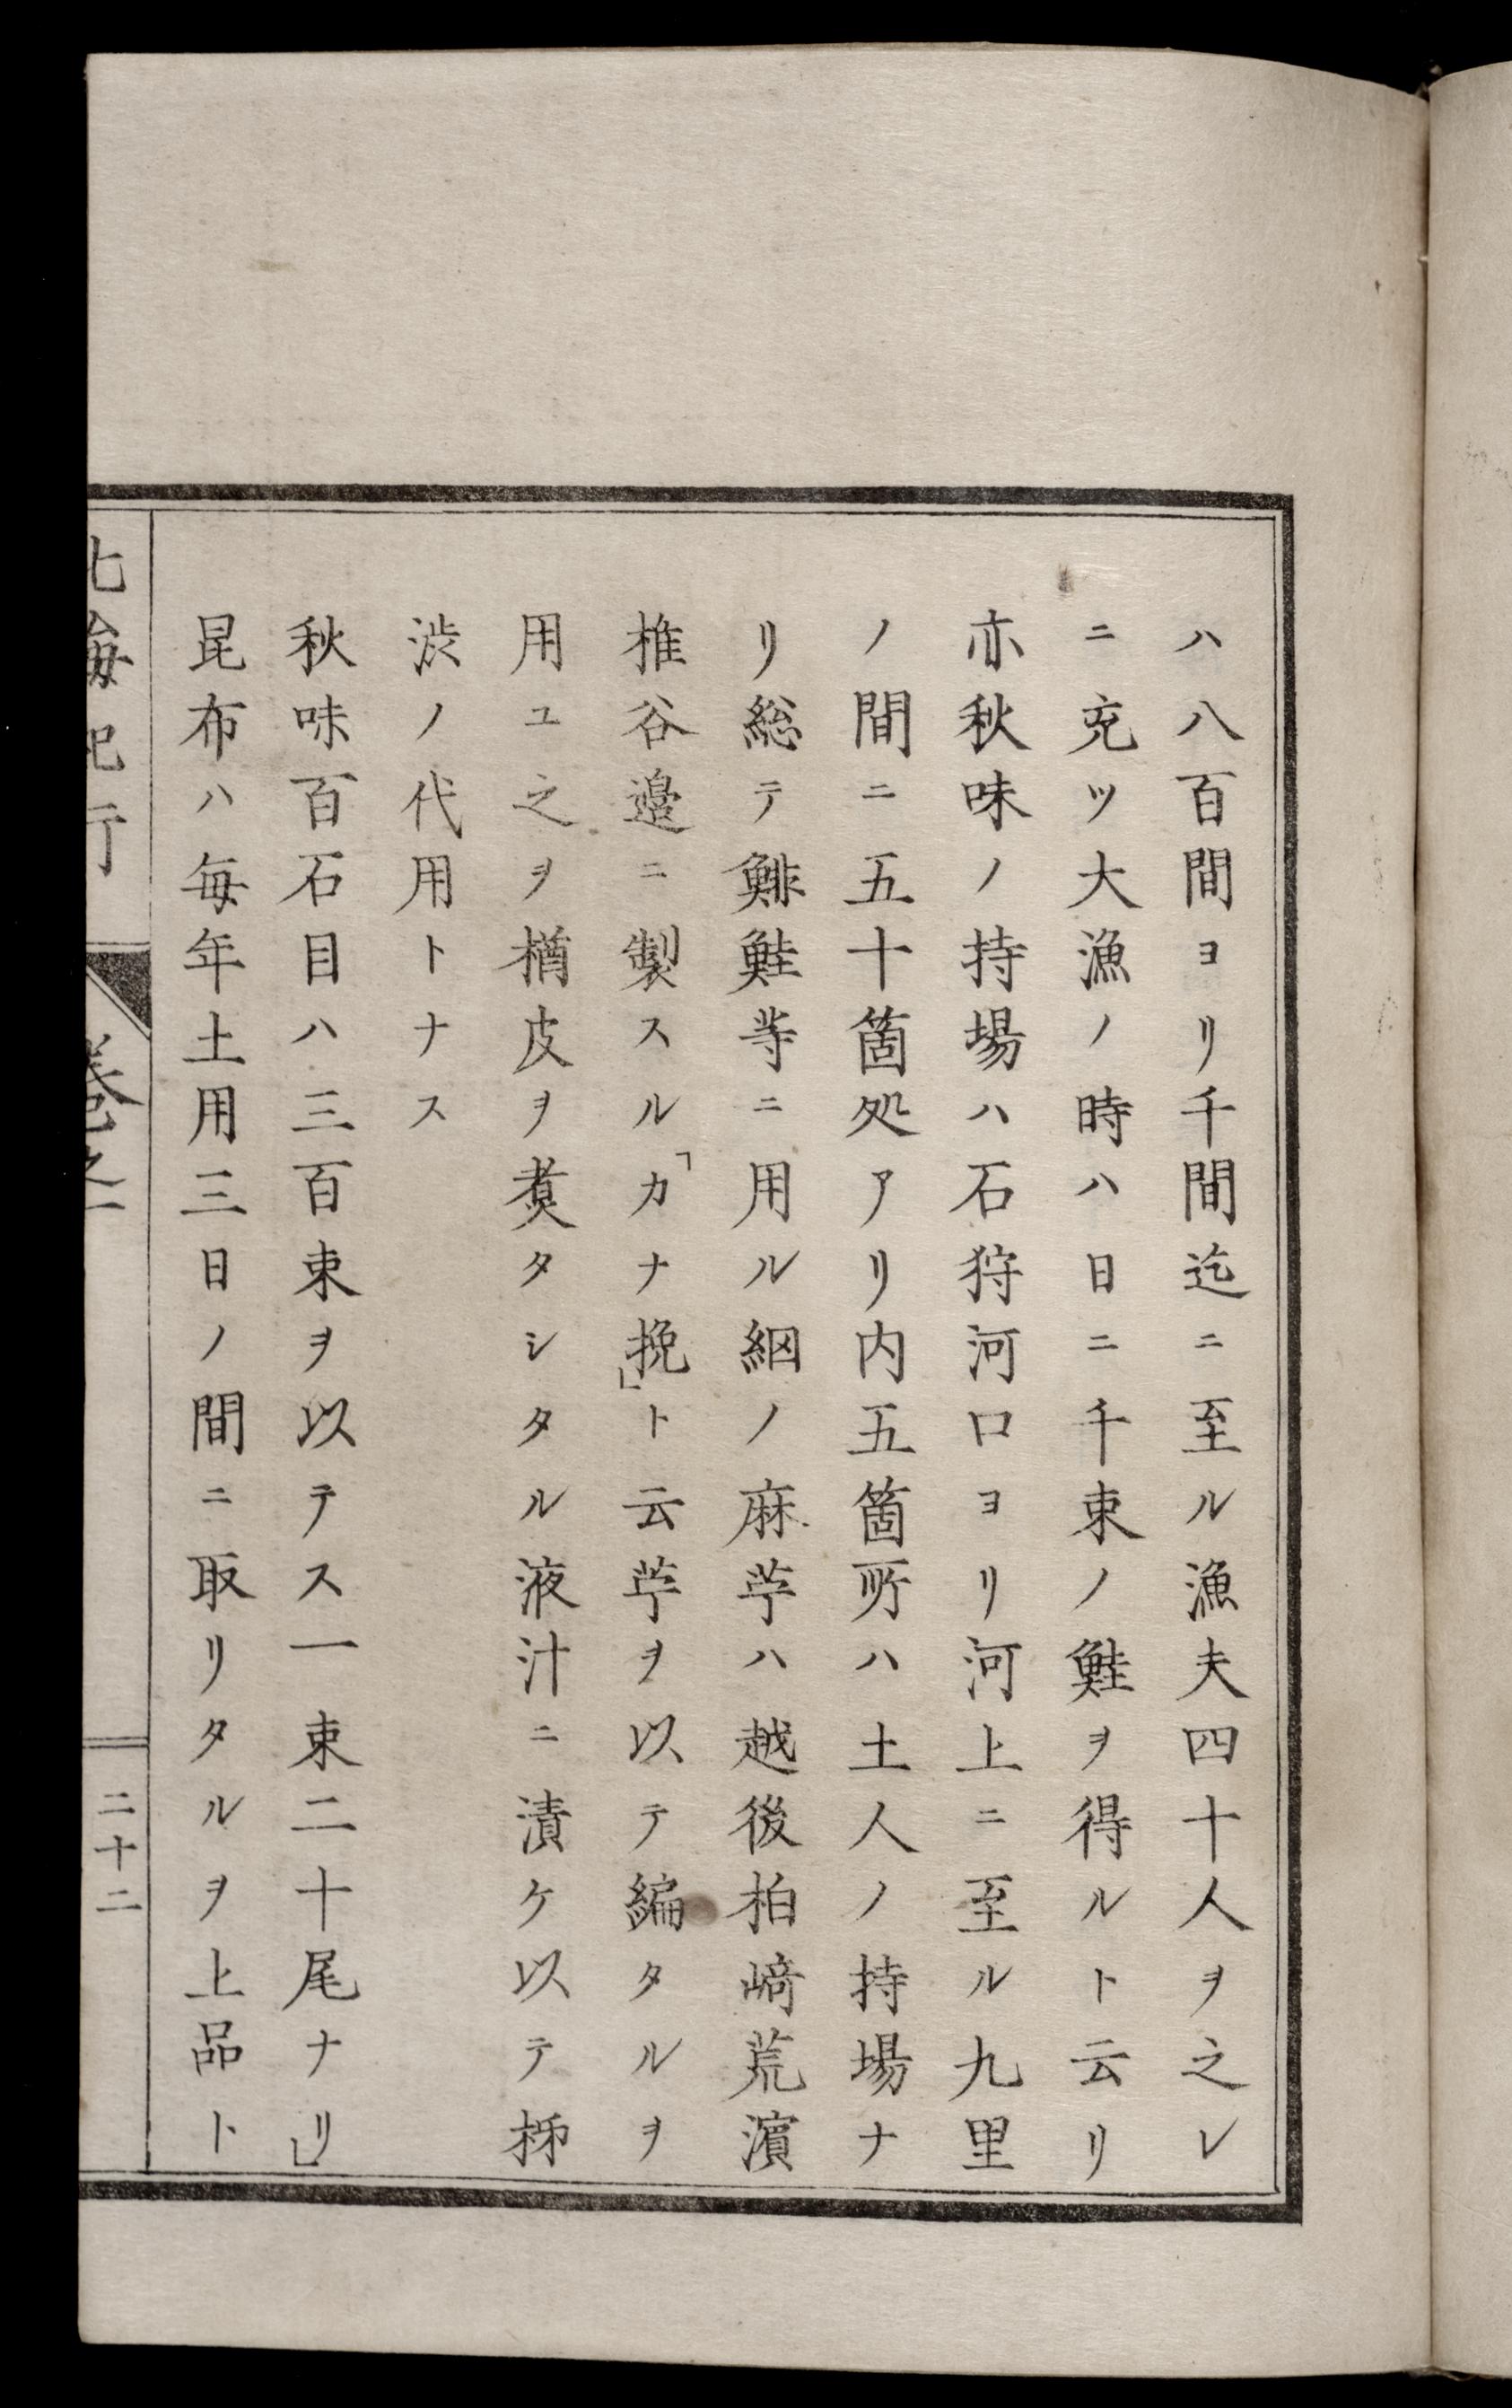 ハ八百間ヨリ千間迄ニ至ル漁夫四十人ヲ之レ
ニ充ツ大漁ノ時ハ日ニ千束ノ鮭ヲ得ルト云リ
亦秋味ノ持場ハ石狩河口ヨリ河上ニ至ル九里
ノ間ニ五十箇処アリ内五箇所ハ土人ノ持場ナ
リ総テ鯡鮭等ニ用ル網ノ麻苧ハ越後柏﨑荒濱
椎谷邉ニ製スル「カナ挽」ト云苧ヲ以テ編タルヲ
用ユ之ヲ楢皮ヲ煑タシタル液汁ニ漬ケ以テ柹
渋ノ代用トナス
秋味百石目ハ三百束ヲ以テス一束二十尾ナリ」
昆布ハ毎年土用三日ノ間ニ取リタルヲ上品ト
北海紀行
巻之一
二十二